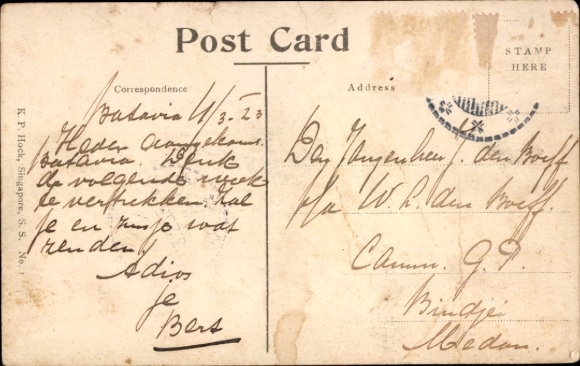 Post Card
STAMP
HERE
Correspondence
Address
K. P. Hock, Singapore, S. S. No. 1
Batavia 11/3-23
Heden aangekomen
Batavia. Denk
de volgende week
te vertrekken. Zal
je en zusje wat
zenden!
Adios
je
Bert
den Boeff
p/a W. L. den Boeff.
G. P.
Bindjei
Medan.